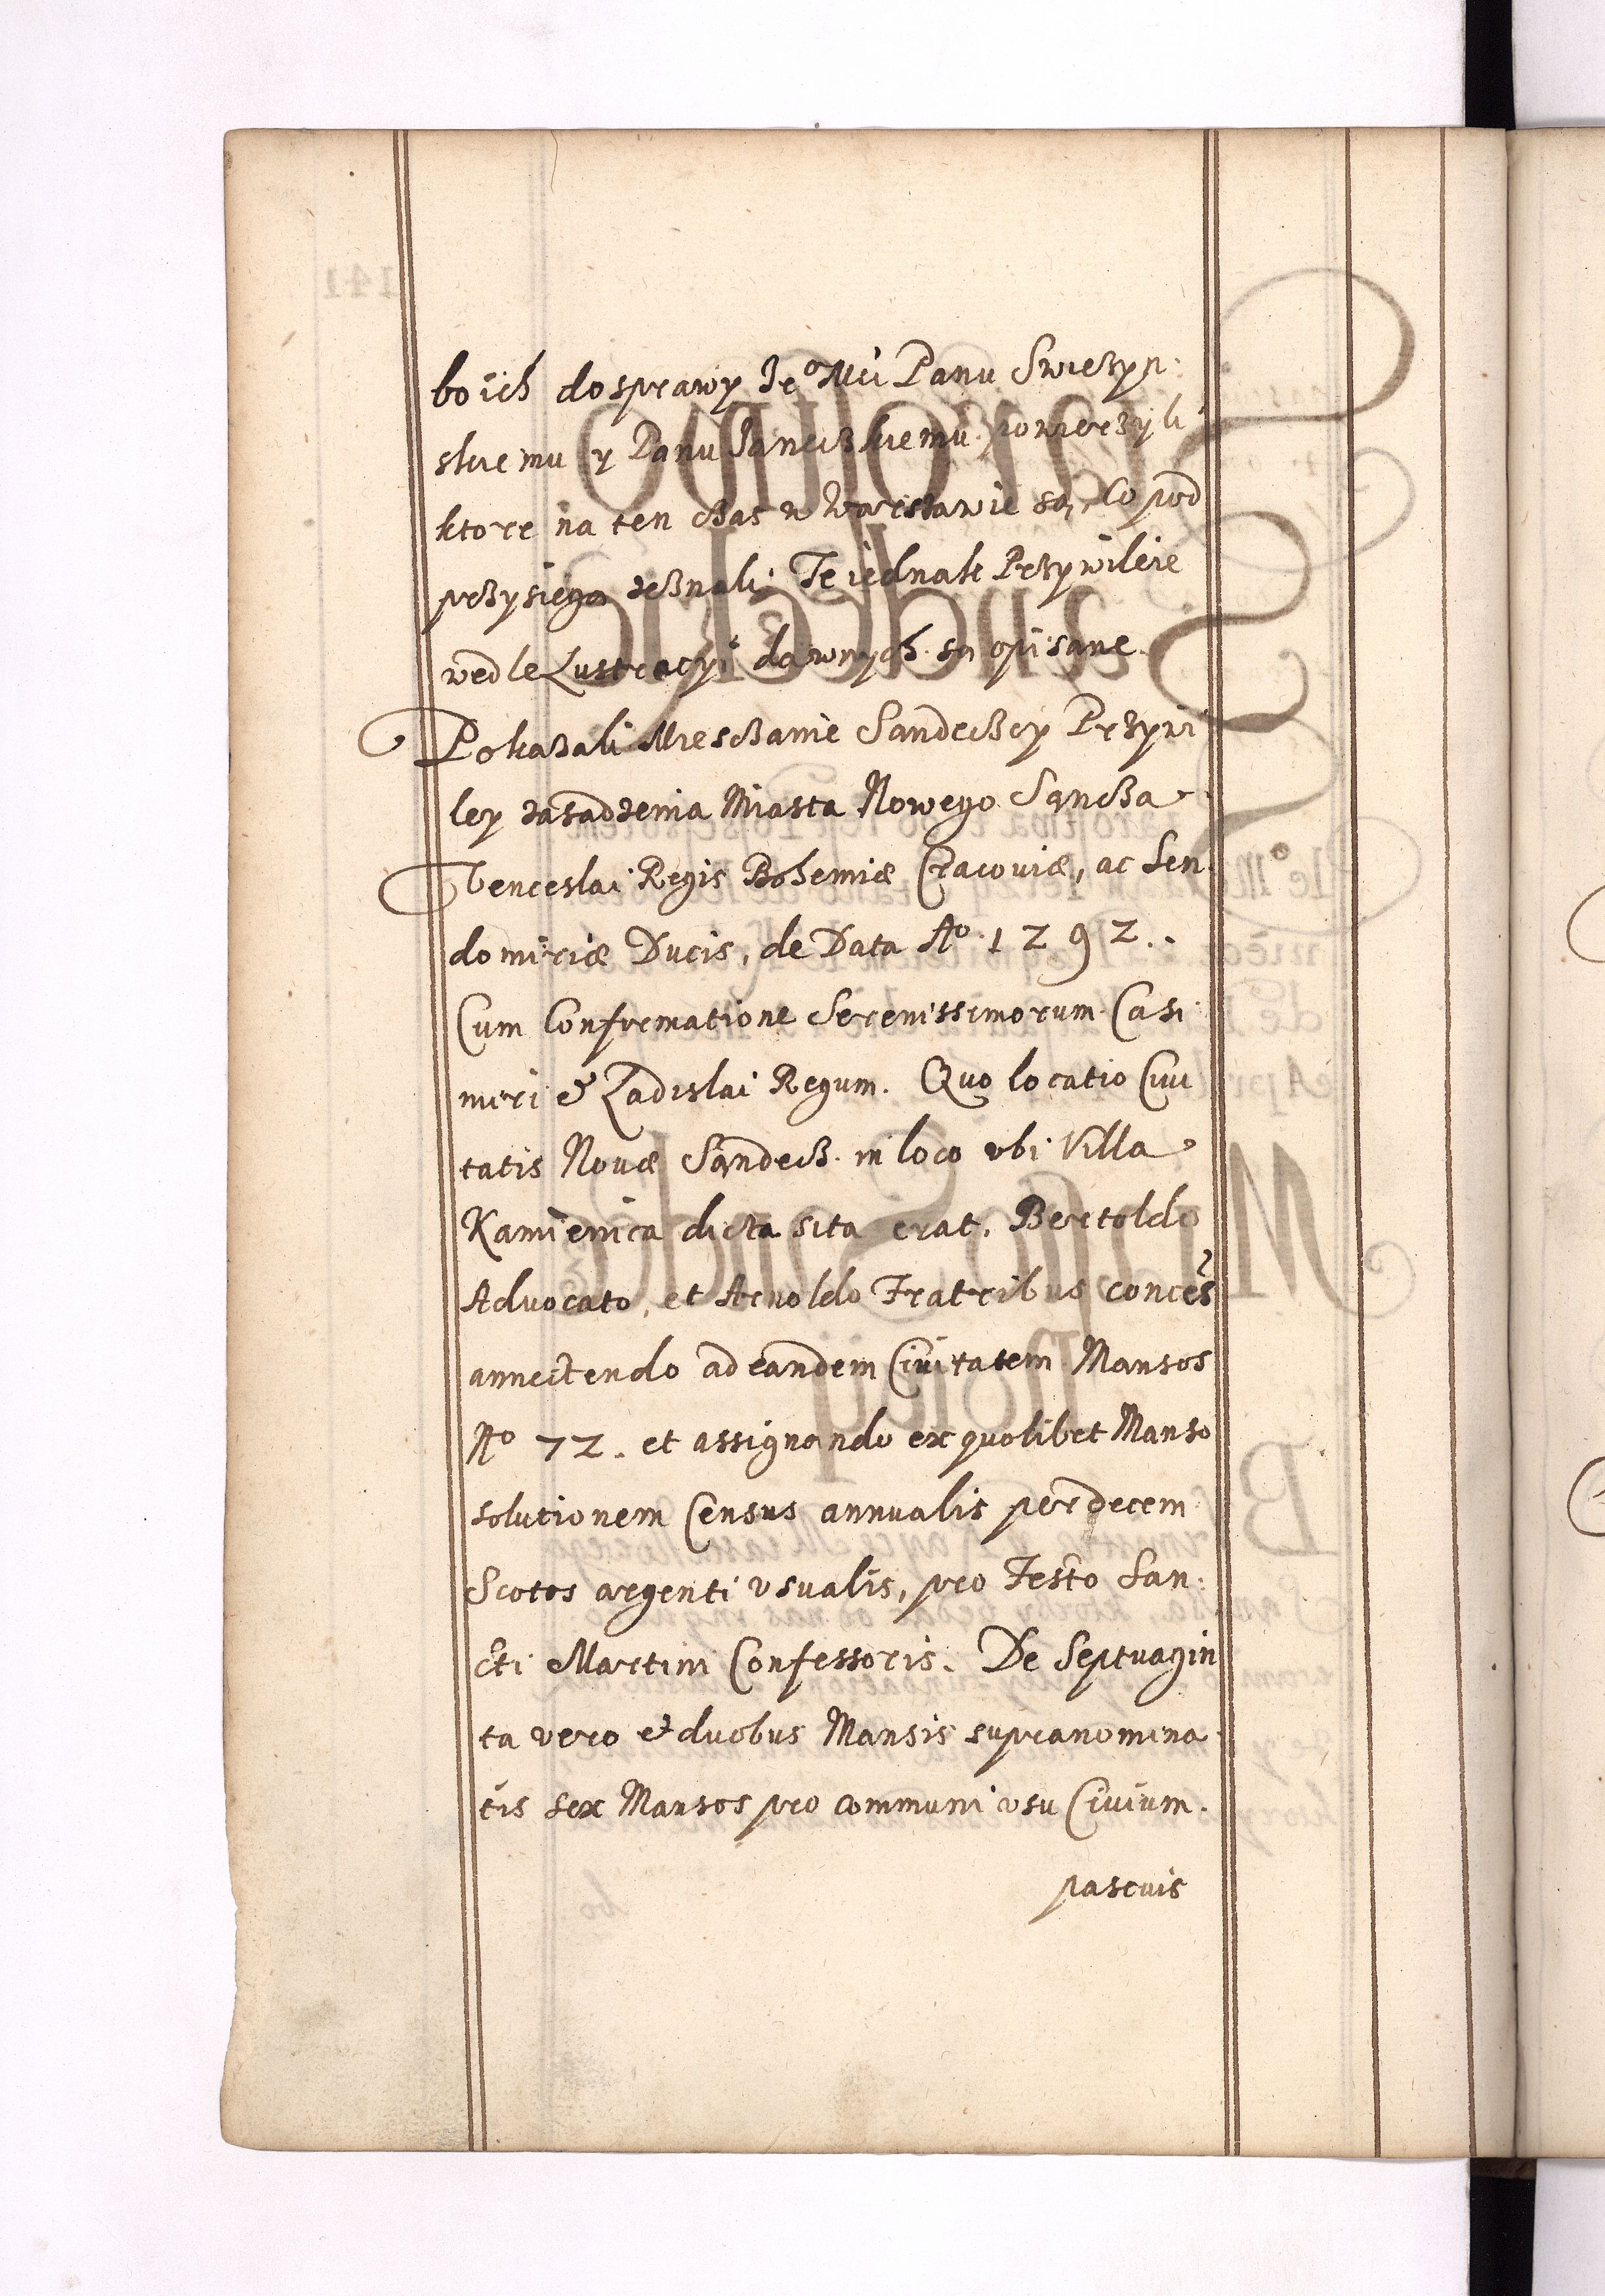 bo ich do sprawy Jeº Mci Panu Swiezyn:
skiemu y Panu Janeczkiemu powierzyli
ktore na ten czas w Warszawie są, Co pod
przysięgą zeznali. Te iednak Przywileie
wedle Lustracyi dawnych są opisane.
Pokazali Miesczanie Sandeczcy Przywi
ley zasadzenia Miasta Nowego Sąncza
Venceslai Regis Bohemiæ Cracoviæ, ac Sen
domiriæ Ducis, de Data Aº 1292.
Cum Confirmatione Serenissimorum Casi
miri & Ladislai Regum. Quo locatio Civi
tatis Novæ Sąndecz. in loco vbi Villa
Kamienica dicta sita erat. Bertoldo
Advocato, et Arnoldo Fratribus conces
annectendo ad eandem Civitatem Mansos
Nº 72. et assignando ex quolibet Manso
solutionem Census annualis per decem
Scotos argenti vsualis, pro Festo San:
cti Martini Confessoris. De Septuagin
ta vero & duobus Mansis supranomina
tis sex Mansos pro communi vsu Civium.
pascuis